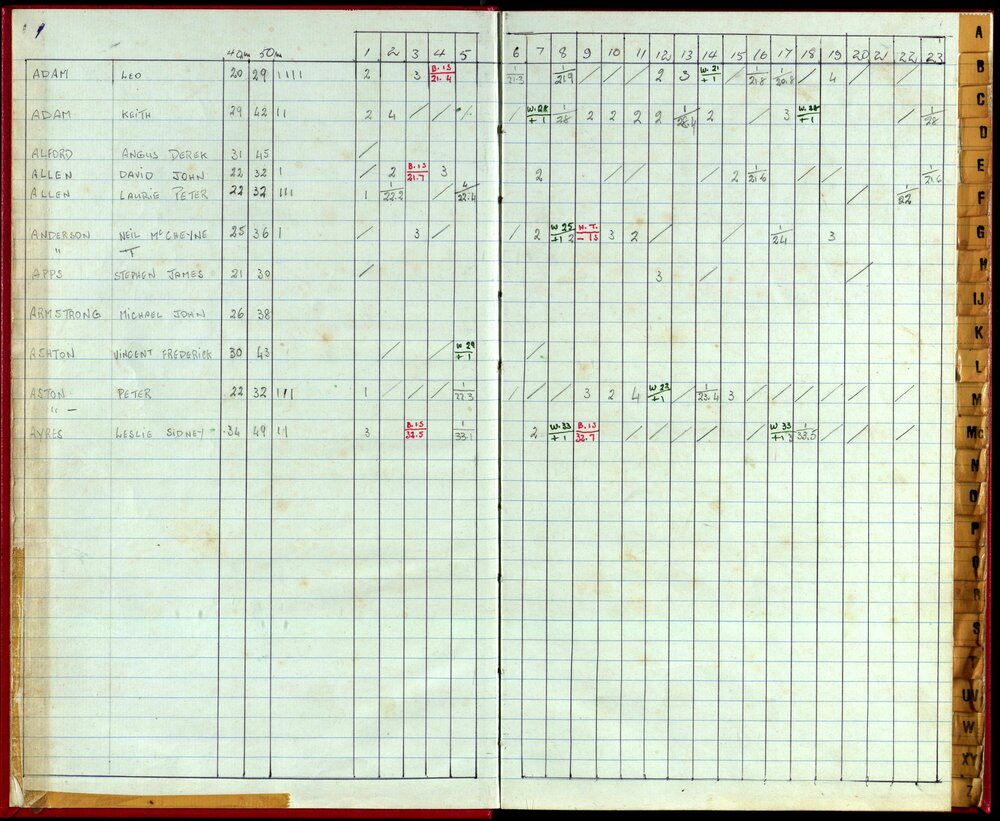 1
40m 50m 1 2 3 4 5 6 7 8 9 10 11 12 13 14 15 16 17 18 19 20 21 22 23
ADAM LEO 20 29 IIII 2 3 B.1S 21.4 1/21.3 1/21.9 / / / 2 3 W.21 +1 / 1/21.8 1/20.8 / 4 / / /
ADAM KEITH 29 42 II 2 4 / / / / W.28 +1 1/28 2 2 2 2 1/28.4 2 / 3 W.28 +1 / 1/28
ALFORD ANGUS DEREK 31 45 /
ALLEN DAVID JOHN 22 32 I / 2 B.1S 21.7 3 2 / / / 2 1/21.6 / / 1/21.6
ALLEN LAURIE PETER 22 32 III 1 1/22.2 / 4/22.4 / 1/22
ANDERSON NEIL McCHEYNE 25 36 I / 3 / / 2 W 25 +1 2 N.T. -1S 3 2 / / / 1/24 3
"
APPS STEPHEN JAMES 21 30 / 3 / /
ARMSTRONG MICHAEL JOHN 26 38
ASHTON VINCENT FREDERICK 30 43 / / W 29 +1 /
ASTON PETER 22 32 III 1 / / / 1/22.3 / / / 3 2 4 W 22 +1 / 1/23.4 3 / / / / / / /
" —
AYRES LESLIE SIDNEY 34 49 II 3 B.1S 32.5 1/33.1 2 W.33 +1 B.1S 32.7 / / / / / / / W 33 +1 3 1/33.5 / / /
A
B
C
D
E
F
G
H
IJ
K
L
M
Mc
N
O
P
Q
R
S
T
UV
W
XY
Z